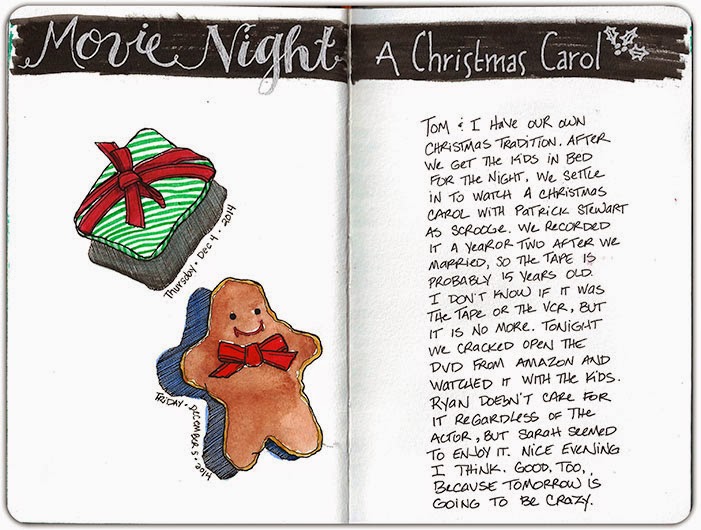 Movie Night
A Christmas Carol
Thursday • Dec 4 • 2014
FRIDAY • DECEMBER 5 • 2014
TOM & I HAVE OUR OWN
CHRISTMAS TRADITION. AFTER
WE GET THE KIDS IN BED
FOR THE NIGHT, WE SETTLE
IN TO WATCH A CHRISTMAS
CAROL WITH PATRICK STEWART
AS SCROOGE. WE RECORDED
IT A YEAR OR TWO AFTER WE
MARRIED, SO THE TAPE IS
PROBABLY 15 YEARS OLD.
I DON'T KNOW IF IT WAS
THE TAPE OR THE VCR, BUT
IT IS NO MORE. TONIGHT
WE CRACKED OPEN THE
DVD FROM AMAZON AND
WATCHED IT WITH THE KIDS.
RYAN DOESN'T CARE FOR
IT REGARDLESS OF THE
ACTOR, BUT SARAH SEEMED
TO ENJOY IT. NICE EVENING
I THINK. GOOD, TOO,
BECAUSE TOMORROW IS
GOING TO BE CRAZY.